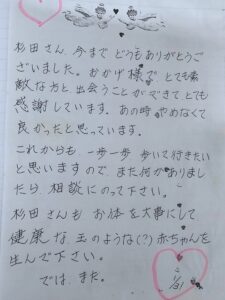 杉田さん、今まで どうもありがとうご
ざいました。おかげ様で とても素
敵な方と 出会うことが できてとても
感謝しています。あの時 やめなくて
良かったと思っています。
これからも 一歩一歩 歩いて行きたい
と思いますので また何かありまし
たら 相談にのって下さい。
杉田さんも お体を大事にして
健康な 玉のような(?)赤ちゃんを
生んで下さい。
では、また。